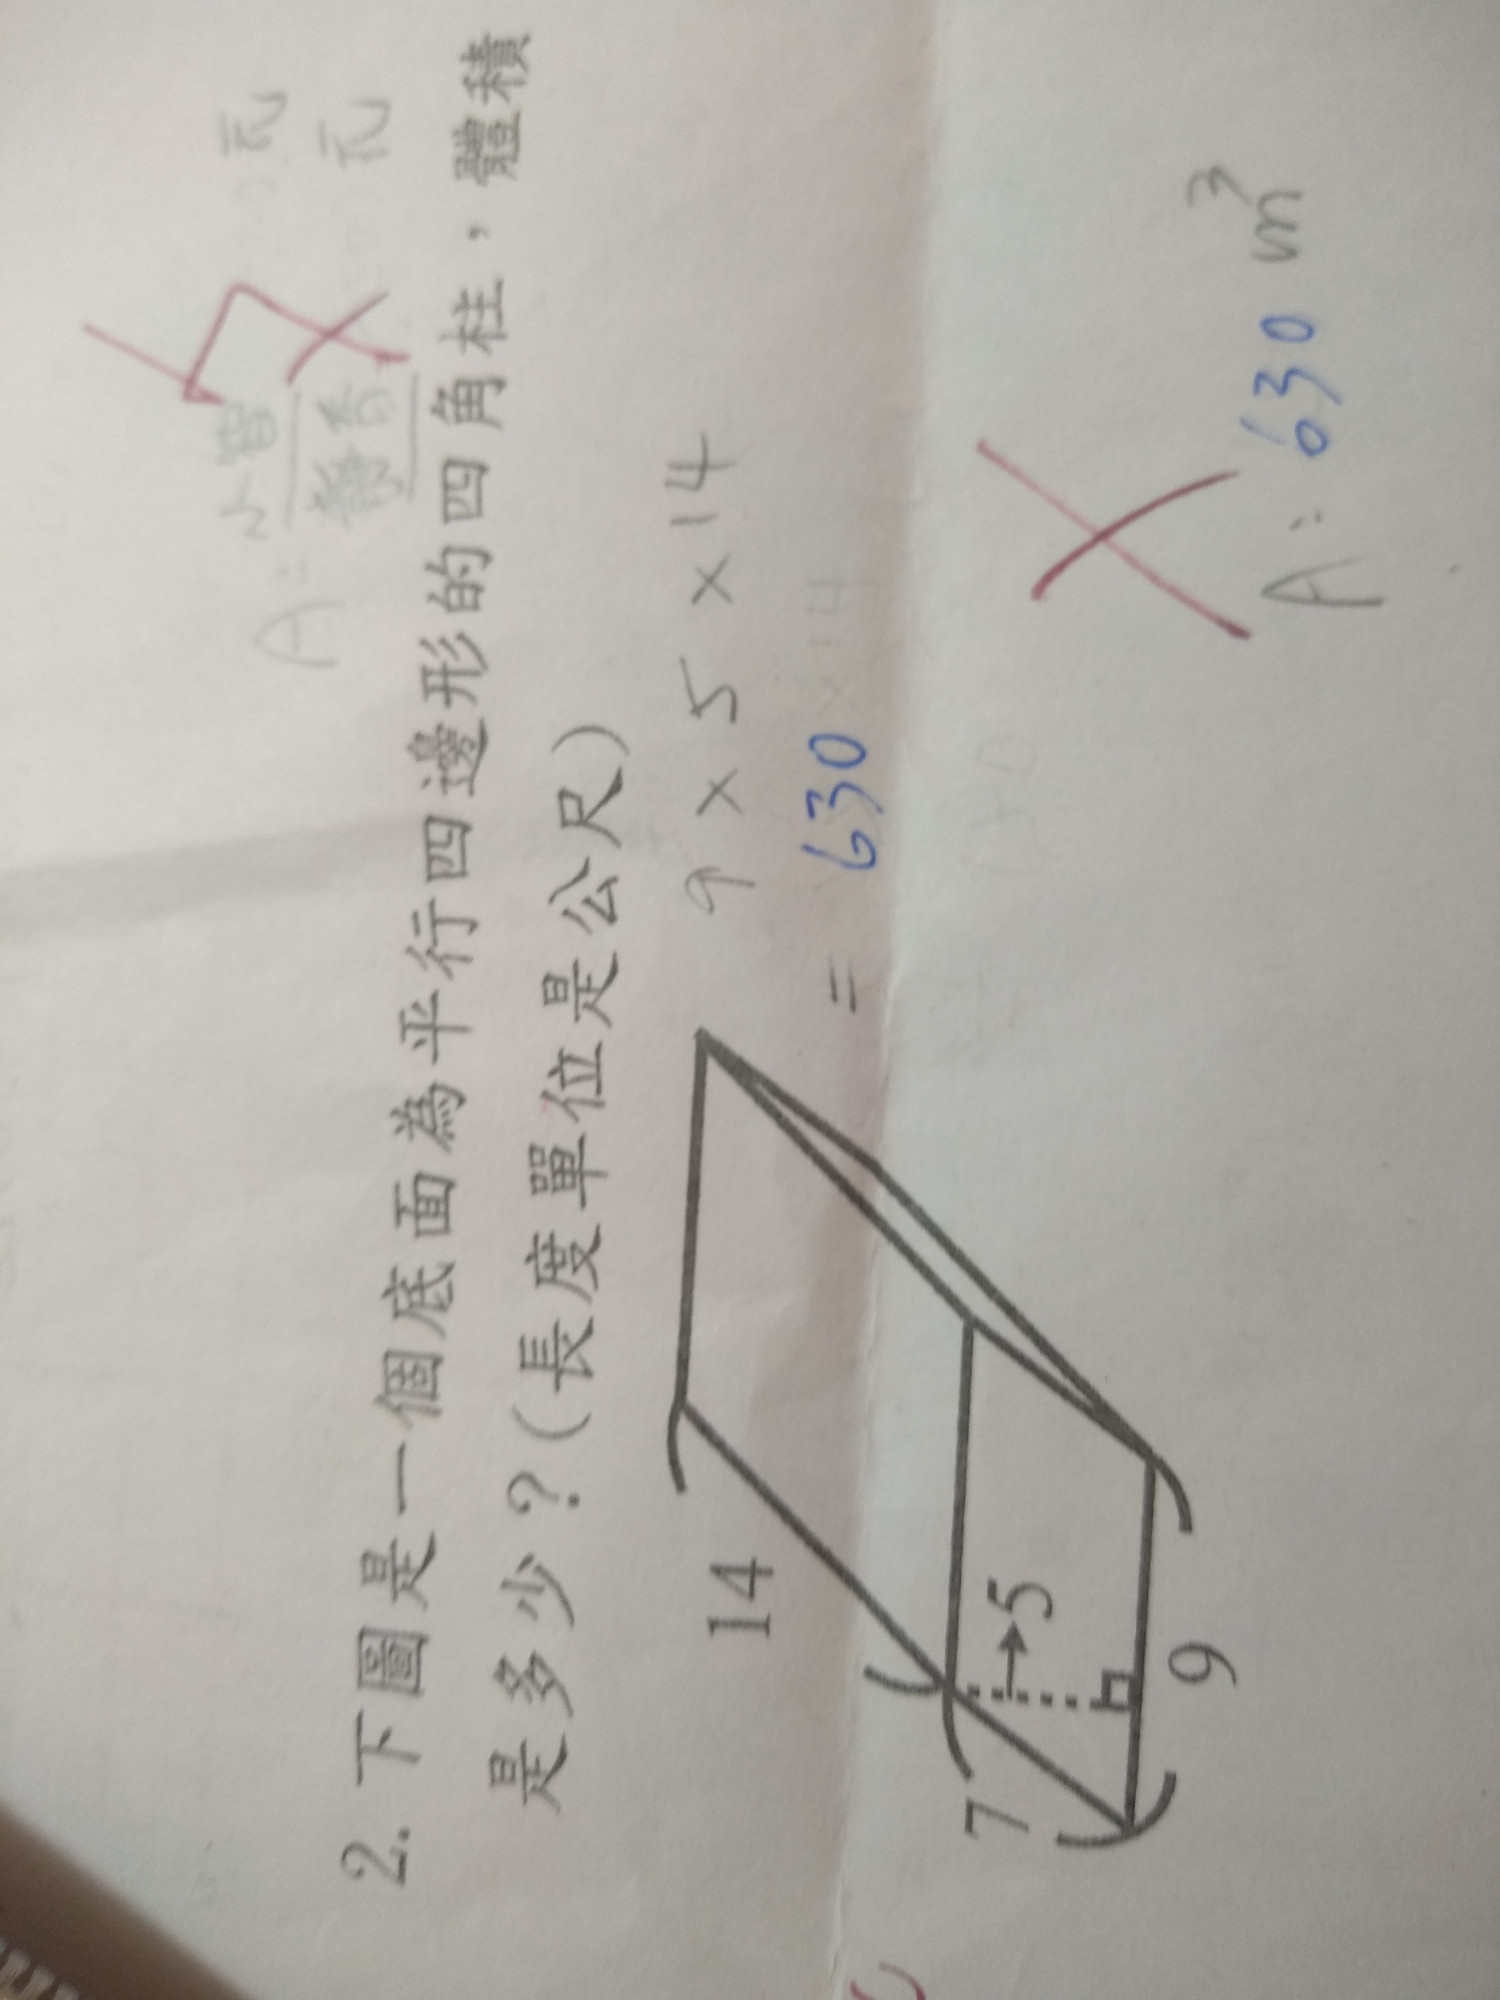 元
A: 元
2. 下圖是一個底面為平行四邊形的四角柱，體積
是多少？(長度單位是公尺)
14
7
5
9
9 × 5 × 14
= 630
A: 630 m³